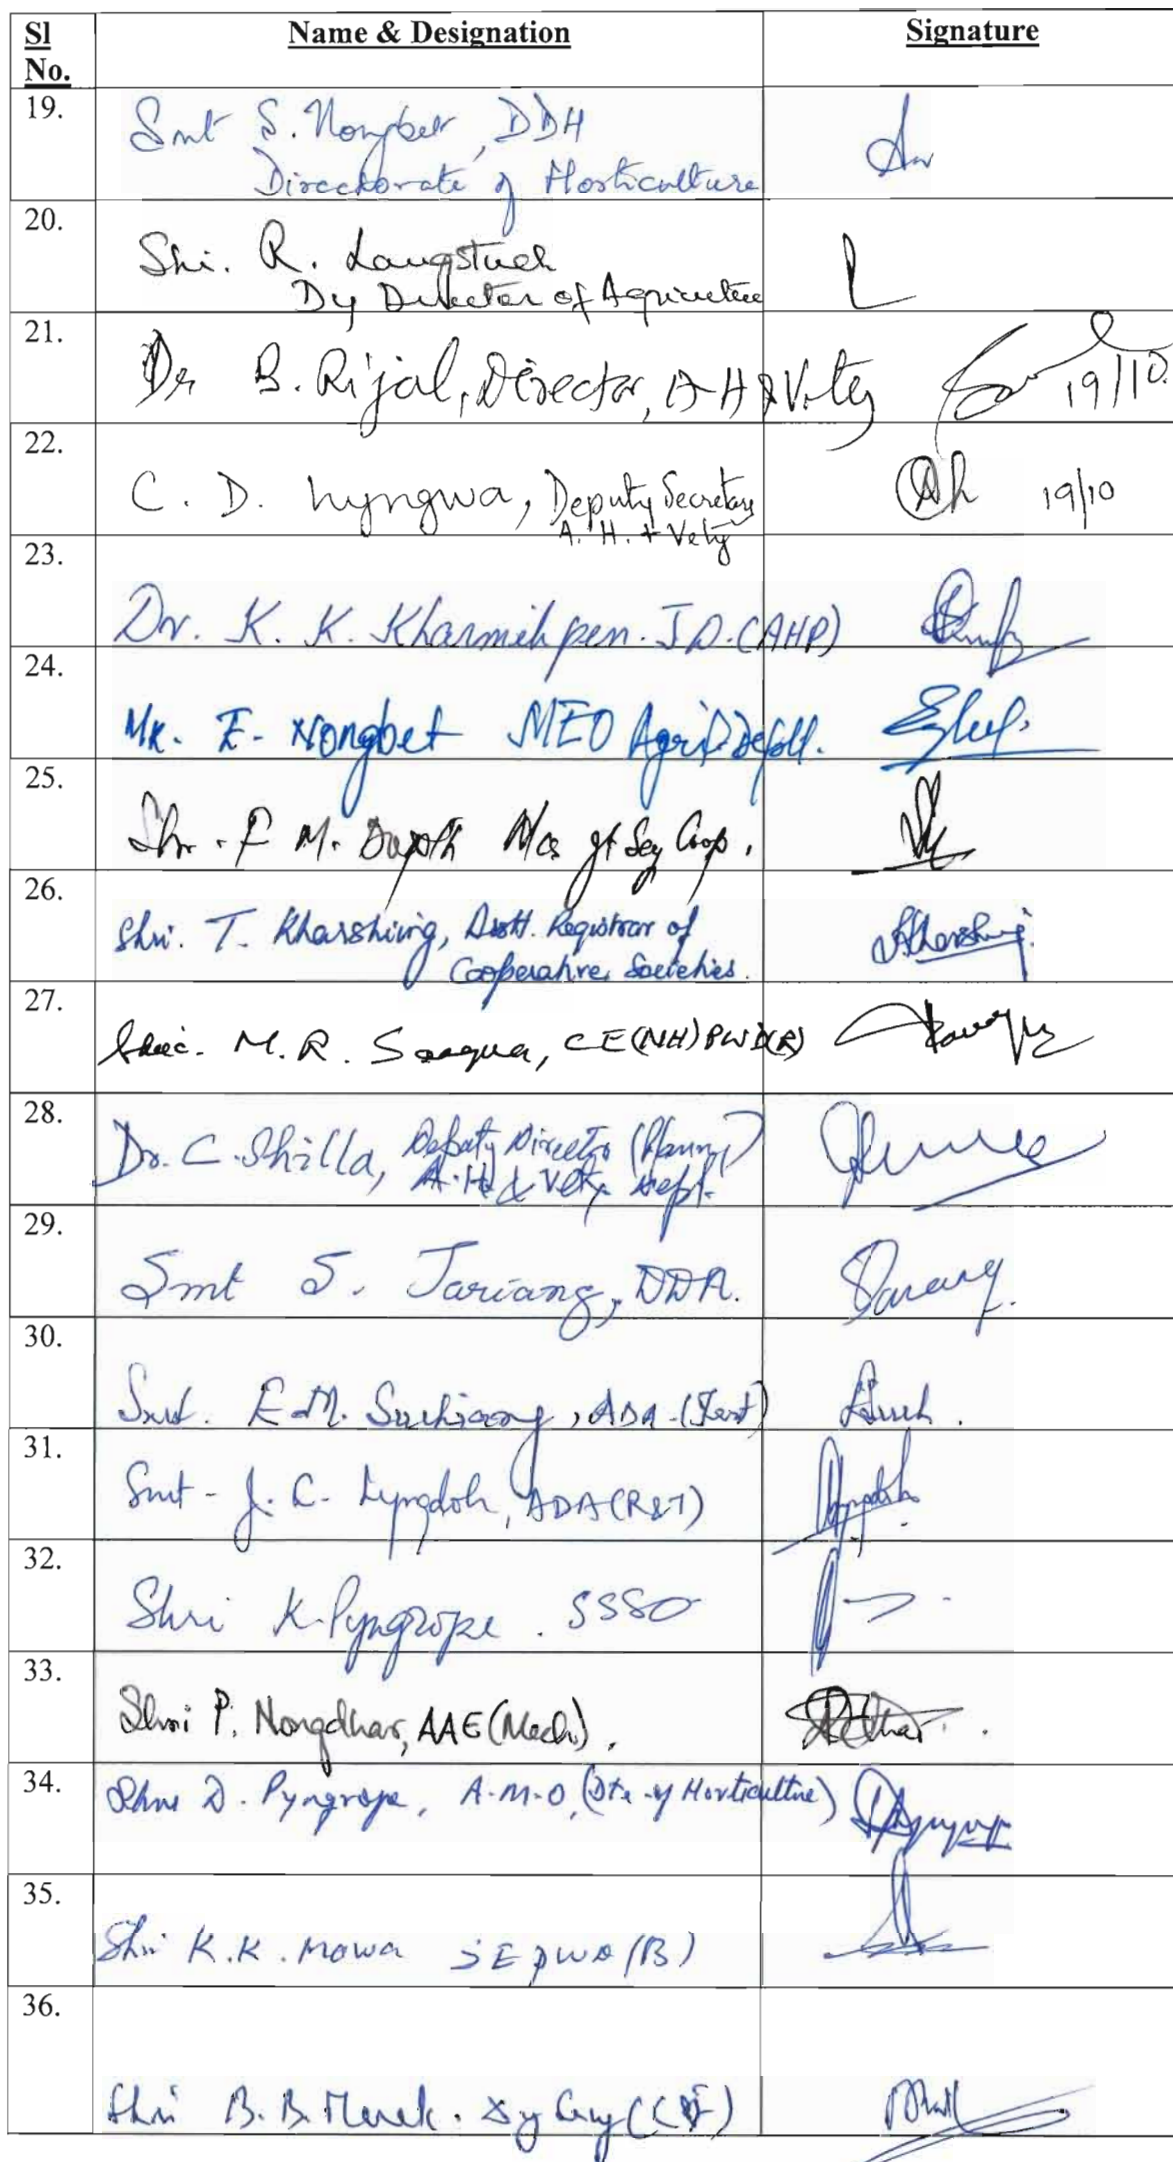 Sl No.
Name & Designation
Signature
19.
Smt S. Nongbet, DDH
Directorate of Horticulture
20.
Shri. R. Langstieh
Dy Director of Agriculture
21.
Dr B. Rijal, Director, A-H & Vety
19/10
22.
C. D. Lyngwa, Deputy Secretary
A. H. + Vety
19/10
23.
Dr. K. K. Kharmihpen. J D. (AHP)
24.
Mr. E. Nongbet MEO Agri. Deptt.
25.
Shri. F M.
26.
Shri. T. Kharshiing, Asstt. Registrar of
Cooperative Societies.
27.
M. R. CE (NH) PWD(R)
28.
Dr. C. Shilla, Deputy Director
A.H. & Vety. Dept.
29.
Smt S. Tariang, DDA.
30.
Smt. E.M. Suchiang, ADA -
31.
Smt - J. C. Lyngdoh, ADA (R&T)
32.
Shri K. Pyngrope. SSSO
33.
Shri P. Nongdhar, AAE (Mech).
34.
Shri D. Pyngrope, A.M.O, (Dte of Horticulture)
35.
Shri K.K. Mawa SE PWD (B)
36.
Shri B. B. Marak.